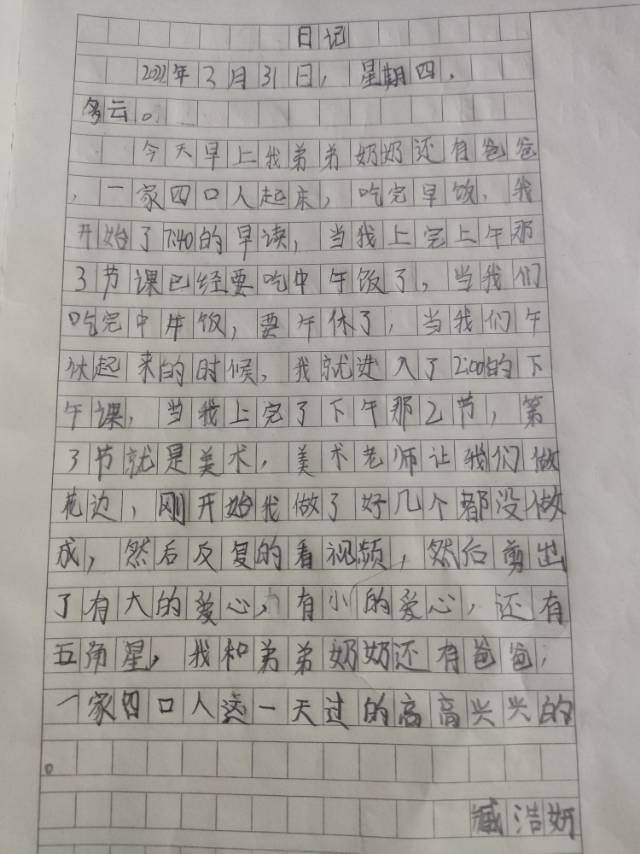 日记
2022年3月31日，星期四，
多云。
今天早上我弟弟奶奶还有爸爸
，一家四口人起床，吃完早饭，我
开始了7:40的早读，当我上完上午那
3节课已经要吃中午饭了，当我们
吃完中午饭，要午休了，当我们午
休起来的时候，我就进入了2:00的下
午课，当我上完了下午那2节，第
3节就是美术，美术老师让我们做
花边，刚开始我做了好几个都没做
成，然后反复的看视频，然后剪出
了有大的爱心，有小的爱心，还有
五角星，我和弟弟奶奶还有爸爸，
一家四口人这一天过的高高兴兴的
。
臧浩妍